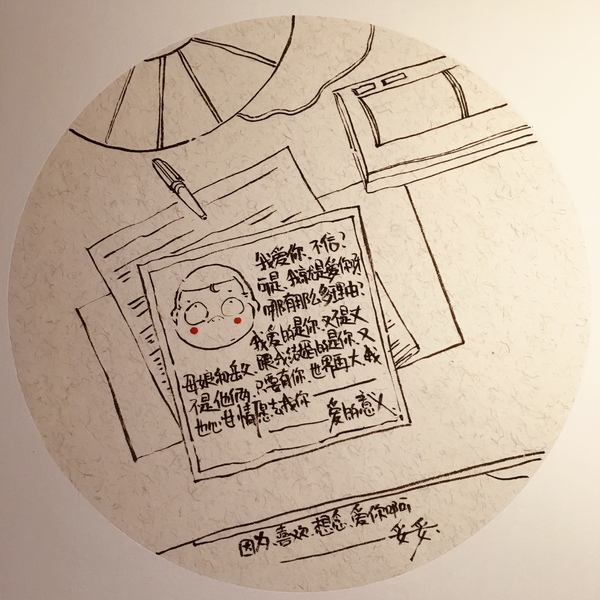 我爱你、不信?
可是、我就是爱你呀
哪有那么多理由?
我爱的是你、又不是丈
母娘和岳父、跟我结婚的是你、又
不是他俩、只要有你、世界再大、我
也心甘情愿去找你
爱的意义、
因为、喜欢、想念、爱你啊
妥妥、